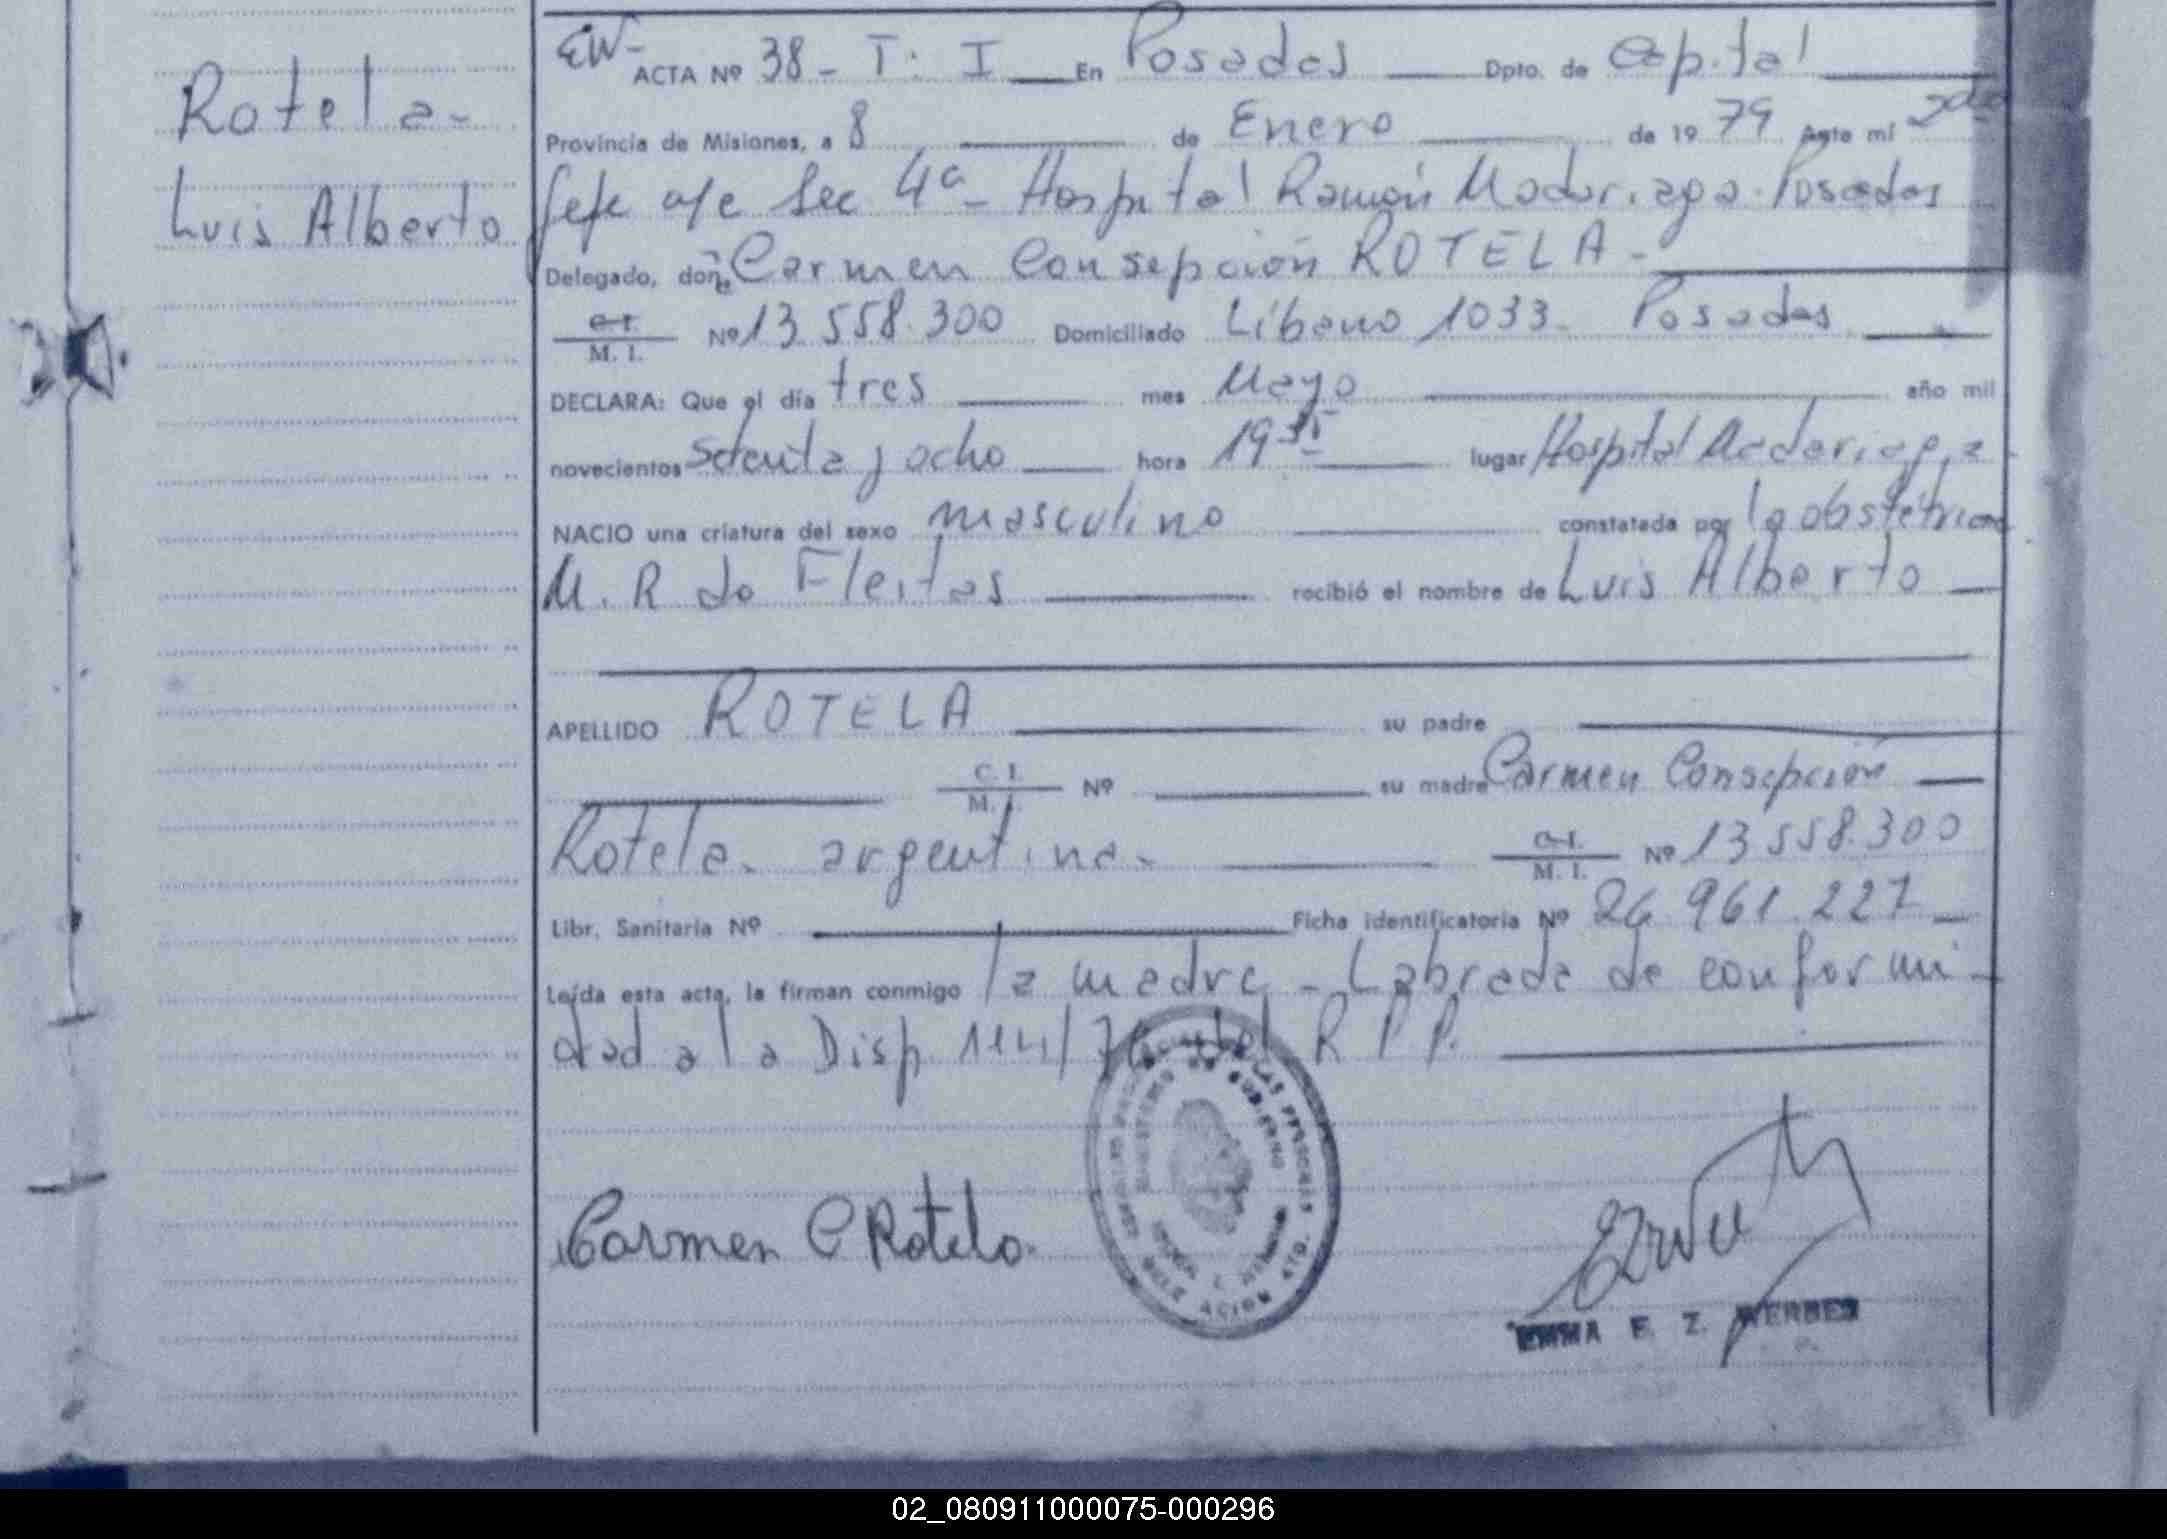 Rotela-
Luis Alberto
EW- ACTA Nº 38 - T. I En Posadas Dpto. de Capital
Provincia de Misiones, a 8 de Enero de 1979 Ante mí
Jefe a/c Sec 4ª - Hospital Ramón Madariaga. Posadas
Delegado, doña Carmen Consepción ROTELA -
C. I. M. I. Nº 13.558.300 Domiciliado Líbano 1033. Posadas
DECLARA: Que el día tres mes Mayo año mil
novecientos setenta y ocho hora 19 lugar Hospital Madariaga
NACIO una criatura del sexo masculino constatada por la obstétrica
M. R de Fleitas recibió el nombre de Luis Alberto
APELLIDO ROTELA su padre
C. I. M. I. Nº su madre Carmen Consepción
Rotela - argentina - C. I. M. I. Nº 13.558.300
Libr. Sanitaria Nº Ficha identificatoria Nº 26.961.227
Leída esta acta, la firman conmigo la madre - Labrada de conformi-
dad a la Disp. 114/ del R P P.
Carmen C Rotela.
DELEGACION
EMMA E. Z. WERBES
02_080911000075-000296